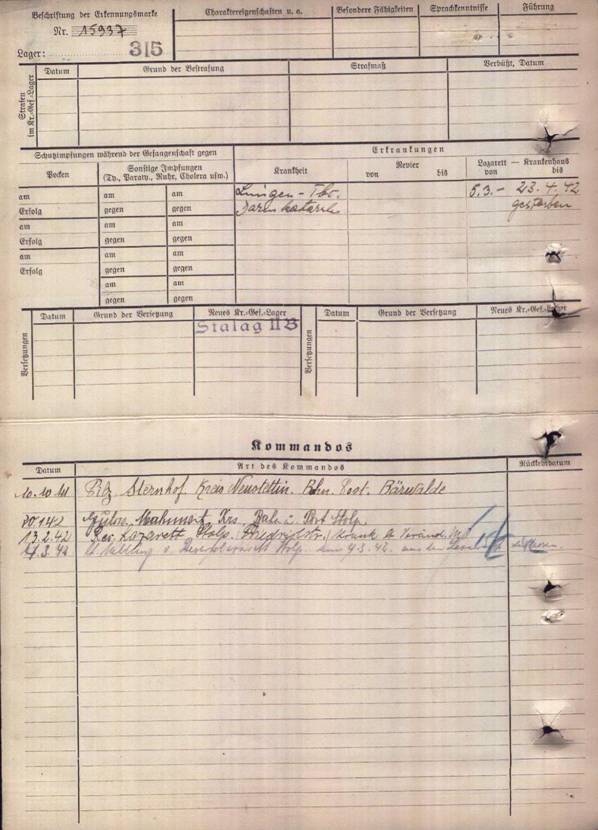 Beschriftung der Erkennungsmarke
Nr. 15937
Lager: 315
Charaktereigenschaften u. a.
Besondere Fähigkeiten
Sprachkenntnisse
Führung
Strafen im Kr.-Gef.-Lager
Datum
Grund der Bestrafung
Strafmaß
Verbüßt, Datum
Schutzimpfungen während der Gefangenschaft gegen
Erkrankungen
Pocken
Sonstige Impfungen
(Ty., Paraty., Ruhr, Cholera usw.)
Krankheit
Revier
von bis
Lazarett — Krankenhaus
von bis
am am am Lungen-Tbc. 5.3.- 23.4.42
Erfolg gegen gegen Darmkatarrh gestorben
am am am
Erfolg gegen gegen
am am am
Erfolg gegen gegen
am am
gegen gegen
Versetzungen
Datum
Grund der Versetzung
Neues Kr.-Gef.-Lager
Stalag II B
Versetzungen
Datum
Grund der Versetzung
Neues Kr.-Gef.-Lager
Kommandos
Datum
Art des Kommandos
Rückkehrdatum
10.10.41 Sternhof. Kreis Neustettin. Bhn. Post. Bärwalde
20.1.42 Krs. Bahn u. Post Stolp
13.2.42 Res. Lazarett Stolp
4.3.42